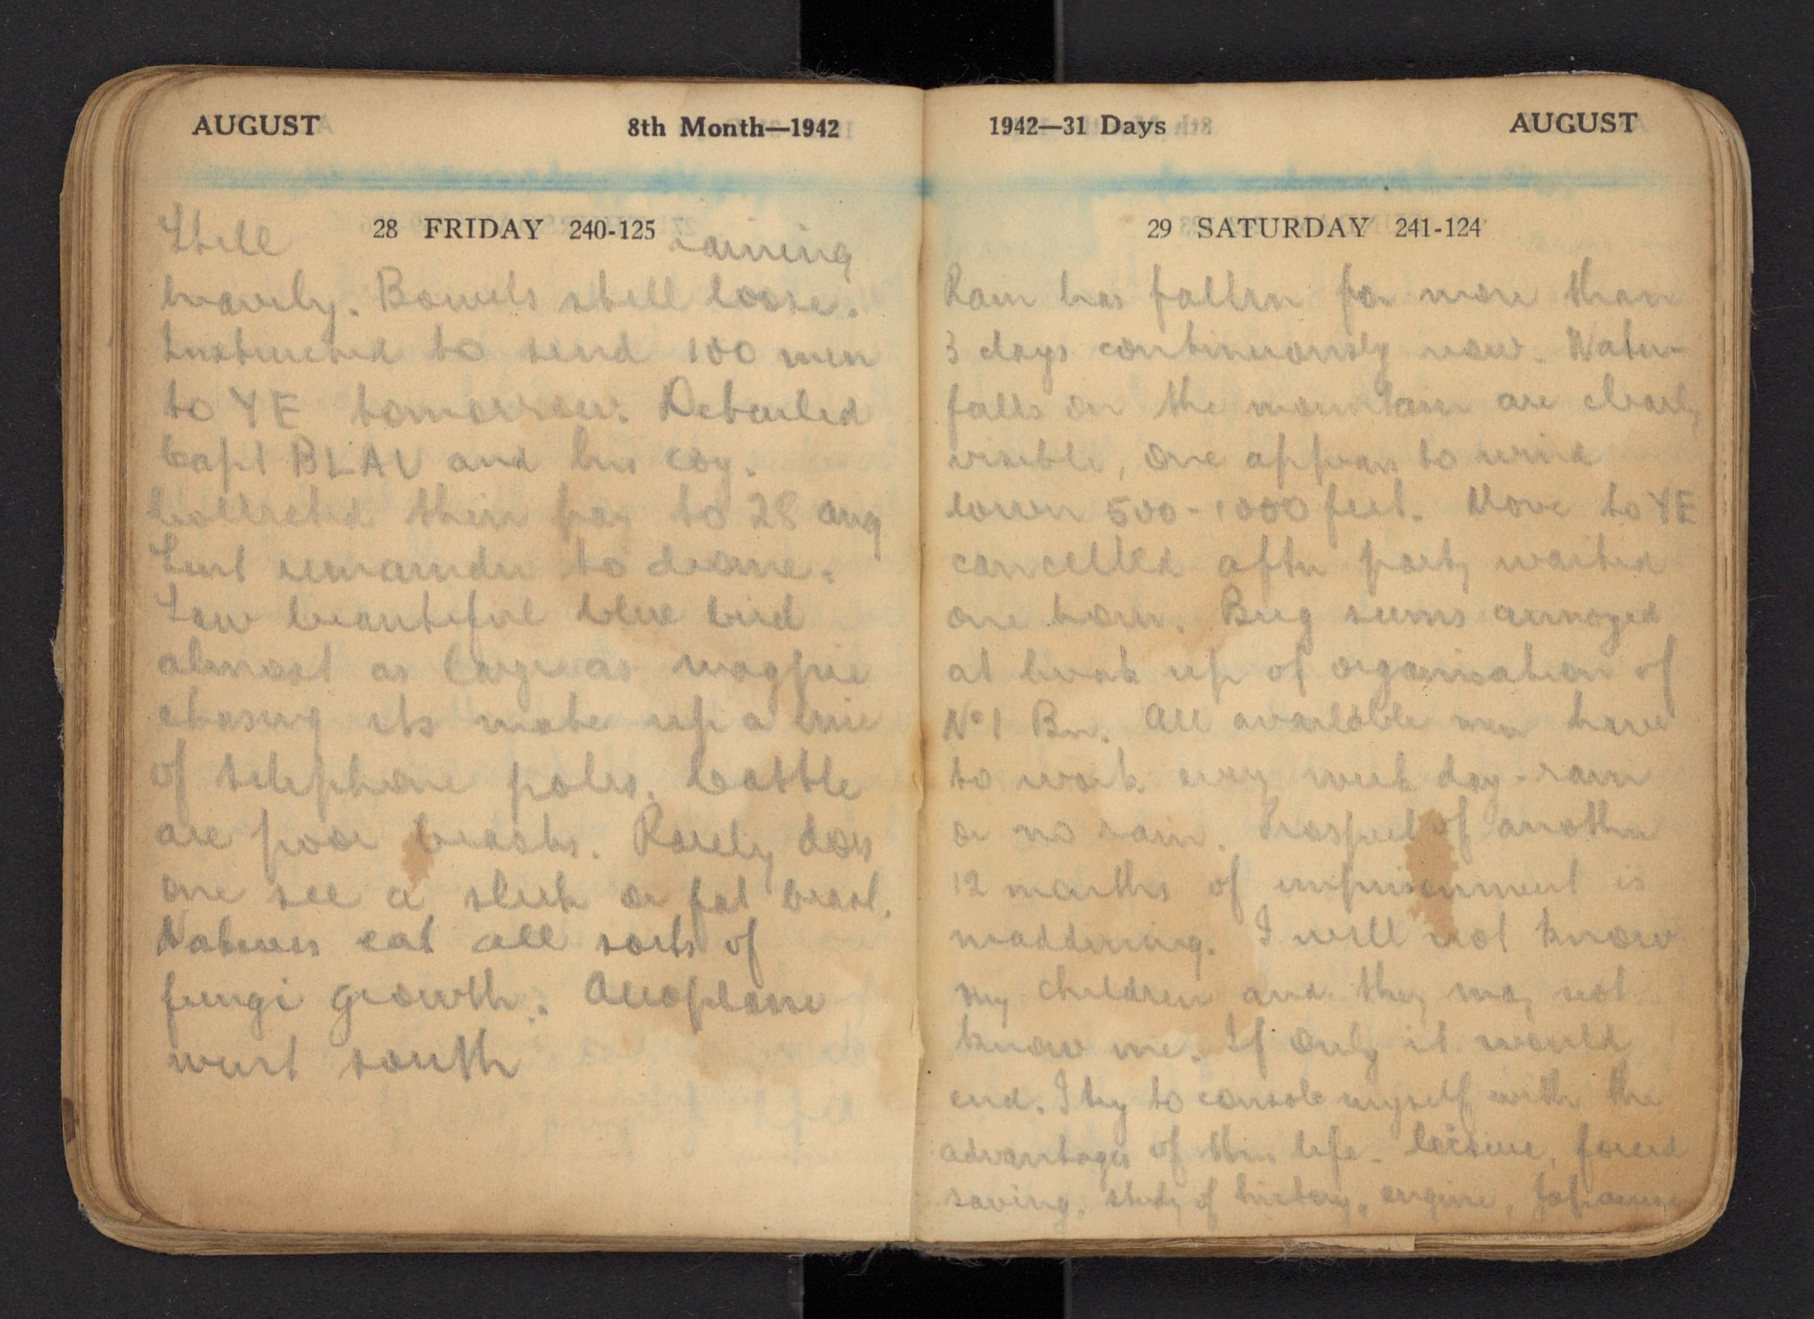 AUGUST 8th Month—1942
28 FRIDAY 240-125
Still raining
heavily. Bowels still loose.
Instructed to send 100 men
to YE tomorrow. Detailed
Capt BLAU and his coy.
Collected their pay to 28 Aug
Sent remainder to drome.
Saw beautiful blue bird
almost as large as magpie
chasing its mate up a line
of telephone poles. Cattle
are poor beasts. Rarely does
one see a sleek or fat beast.
Natives eat all sorts of
fungi growth. Aeroplane
went south
1942—31 Days AUGUST
29 SATURDAY 241-124
Rain has fallen for more than
3 days continuously now. Water-
falls on the mountain are clearly
visible, one appears to wind
down 500-1000 feet. Move to YE
cancelled after party waited
one hour. Brig seems annoyed
at break up of organisation of
No 1 Bn. All available men have
to work every week day - rain
or no rain. Prospect of another
12 months of imprisonment is
maddening. I will not know
my children and they may not
know me. If only it would
end. I try to console myself with the
advantages of this life. leisure, forced
saving, study of history, engine, Japanese